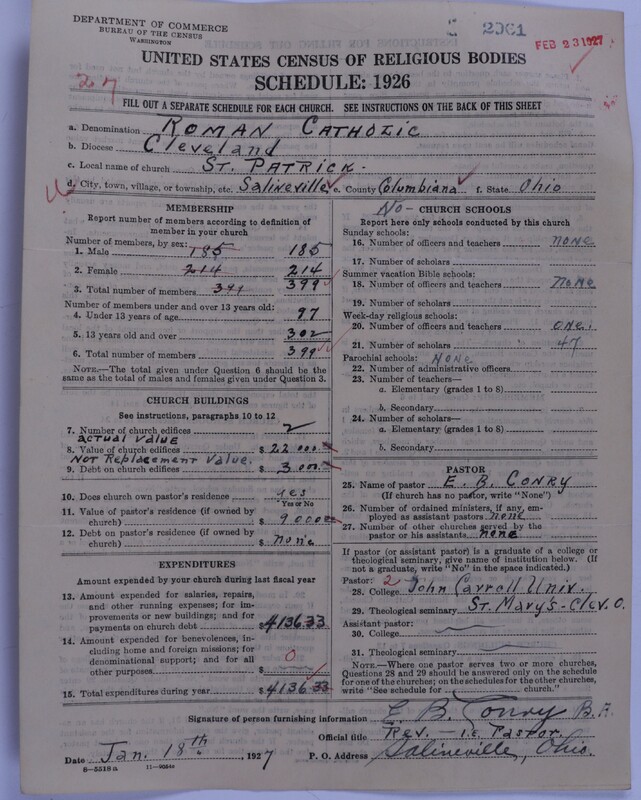 DEPARTMENT OF COMMERCE
BUREAU OF THE CENSUS
WASHINGTON
2061
FEB 23 1927
UNITED STATES CENSUS OF RELIGIOUS BODIES
SCHEDULE: 1926
27
FILL OUT A SEPARATE SCHEDULE FOR EACH CHURCH. SEE INSTRUCTIONS ON THE BACK OF THIS SHEET
a. Denomination ROMAN CATHOLIC
b. Diocese Cleveland
c. Local name of church ST. PATRICK.
d. City, town, village, or township, etc. Salineville e. County Columbiana f. State Ohio
MEMBERSHIP
Report number of members according to definition of
member in your church
Number of members, by sex:
1. Male 185 185
2. Female 214 214
3. Total number of members 399 399
Number of members under and over 13 years old:
4. Under 13 years of age 97
5. 13 years old and over 302
6. Total number of members 399
NOTE.—The total given under Question 6 should be the
same as the total of males and females given under Question 3.
CHURCH BUILDINGS
See instructions, paragraphs 10 to 12
7. Number of church edifices 2
actual value
8. Value of church edifices $ 22 000
NOT Replacement Value.
9. Debt on church edifices $ 3 000
10. Does church own pastor's residence yes
Yes or No
11. Value of pastor's residence (if owned by
church) $ 9 000
12. Debt on pastor's residence (if owned by
church) $ none
EXPENDITURES
Amount expended by your church during last fiscal year
13. Amount expended for salaries, repairs,
and other running expenses; for im-
provements or new buildings; and for
payments on church debt $ 4136.33
14. Amount expended for benevolences, in-
cluding home and foreign missions; for
denominational support; and for all
other purposes $ 0
15. Total expenditures during year $ 4136.33
NO- CHURCH SCHOOLS
Report here only schools conducted by this church
Sunday schools:
16. Number of officers and teachers none
17. Number of scholars
Summer vacation Bible schools:
18. Number of officers and teachers none
19. Number of scholars
Week-day religious schools:
20. Number of officers and teachers one.
21. Number of scholars 47
Parochial schools: NONE
22. Number of administrative officers
23. Number of teachers—
a. Elementary (grades 1 to 8)
b. Secondary
24. Number of scholars—
a. Elementary (grades 1 to 8)
b. Secondary
PASTOR
25. Name of pastor E. B. CONRY
(If church has no pastor, write "None")
26. Number of ordained ministers, if any, em-
ployed as assistant pastors none
27. Number of other churches served by the
pastor or his assistants none
If pastor (or assistant pastor) is a graduate of a college or
theological seminary, give name of institution below. (If
not a graduate, write "No" in the space indicated.)
Pastor: 2
28. College John Carroll Univ.
29. Theological seminary St. Mary's-Clev. O.
Assistant pastor:
30. College
31. Theological seminary
NOTE.—Where one pastor serves two or more churches,
Questions 28 and 29 should be answered only on the schedule
for one of the churches; on the schedules for the other churches,
write "See schedule for church."
Signature of person furnishing information E. B. Conry B.A.
Official title Rev. — i.e. Pastor.
Date Jan. 18th, 1927 P. O. Address Salineville, Ohio.
8-5518a